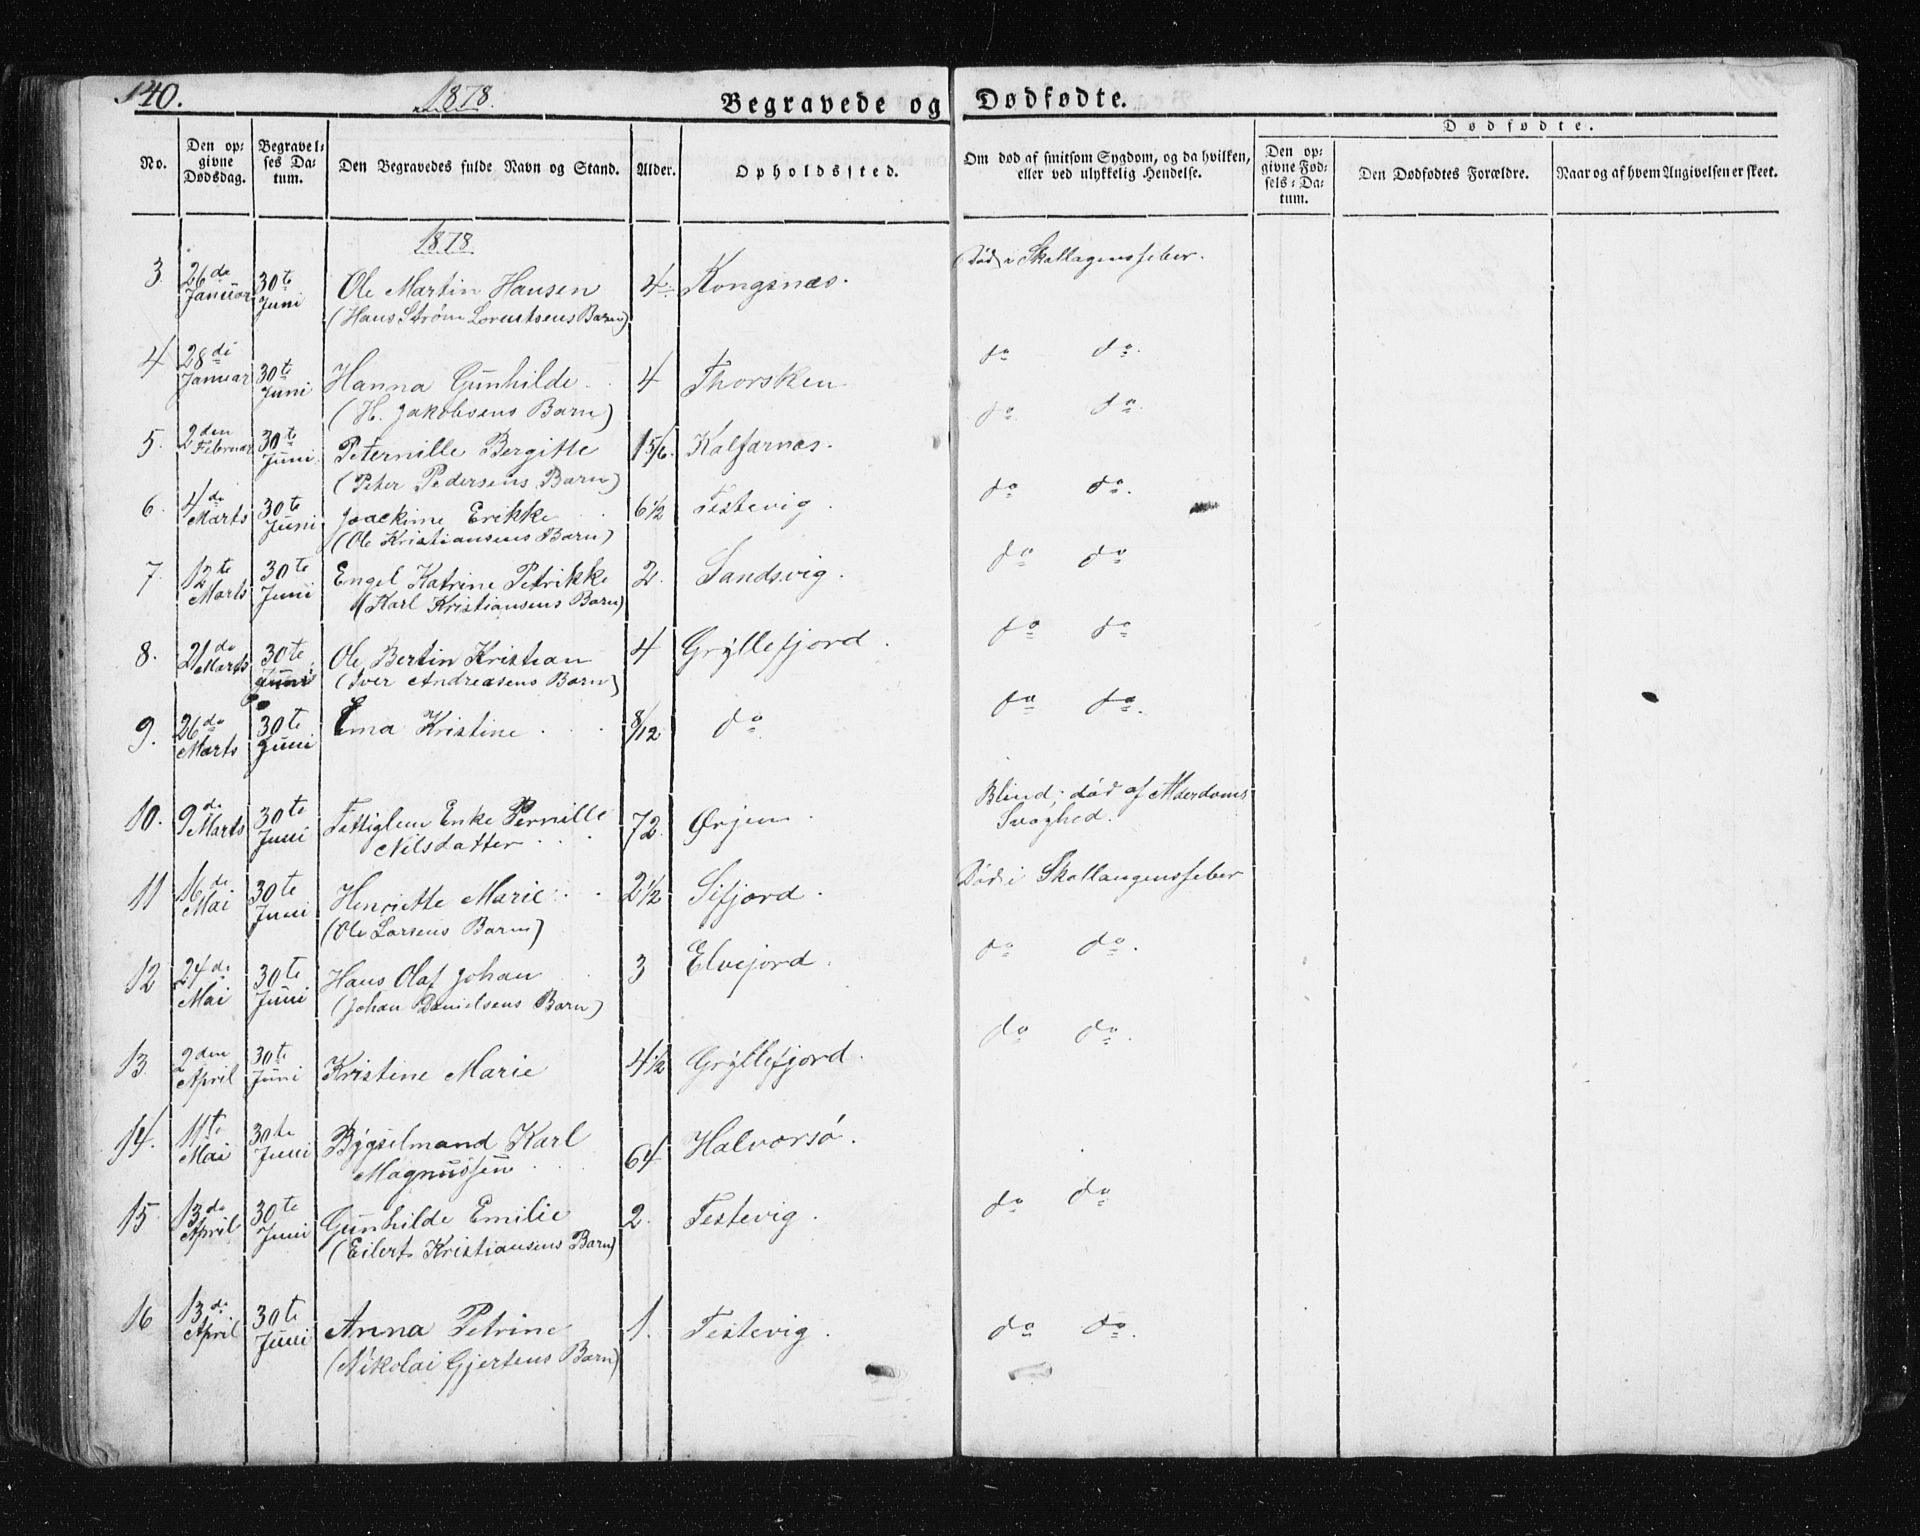 140.
1878.
Begravede og Dødfødte.
No.
Den opgivne Dødsdag.
Begravelses Datum.
Den Begravedes fulde Navn og Stand.
Alder.
Opholdssted.
Om død af smitsom Sygdom, og da hvilken, eller ved ulykkelig Hendelse.
Dødfødte.
Den opgivne Fødsels-Datum.
Den Dødfødtes Forældre.
Naar og af hvem Angivelsen er skeet.
1878.
3. 26de Januar 30te Juni Ole Martin Hansen 4 Kongsnæs. Død i Skallagensfeber.
(Hans Strøm Lorentsens Barn)
4 28de Januar 30te Juni Hanna Gunhilde 4 Thorsken do do.
(H. Jakobsens Barn)
5. 2den Februar 30te Juni. Peternille Bergitte 15/6. Kalfarnæs. do do.
(Peter Pedersens Barn)
6. 4de Marts 30te Juni Joackime Erikke 6 1/2 Testevig. do do.
(Ole Kristiansens Barn)
7. 12te Marts 30te Juni Engel Katrine Petrikke 2. Sandsvig. do do
(Karl Kristiansens Barn)
8. 21de Marts 30te Juni Ole Bertin Kristian 4 Gryllefjord. do do
(Iver Andreasens Barn)
9. 26de Marts 30te Juni Ema Kristine 8/12 do do do.
10. 9de Marts 30te Juni Fattiglem Enke Pernille 72. Ørjen. Blind; død af Alderdoms
Nilsdatter Svaghed.
11 16de Mai 30te Juni Henriette Marie 2 1/2 Sifjord. Død i Skallangensfeber
(Ole Larsens Barn)
12 24de Mai 30te Juni Hans Olaf Johan 3 Elvejord. do do.
(Johan Danielsens Barn)
13. 2den April 30te Juni Kristine Marie 4 1/2 Gryllefjord. do do.
14. 11te Mai 30te Juni Bygselmand Karl 64 Halvorsø.
Magnussen
15. 13de April 30te Juni Gunhilde Emilie 2. Testevig. do do
(Eilert Kristiansens Barn)
16 13de April 30te Juni Anna Petrine 1. Testevig. do do.
(Nikolai Gjertsens Barn)